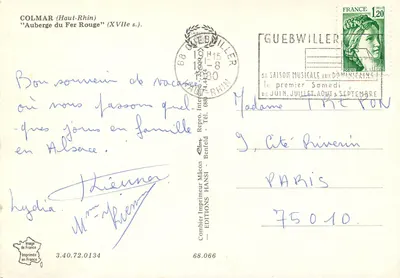 COLMAR (Haut-Rhin)
"Auberge du Fer Rouge" (XVIIe s.).
Bon souvenir de vacances
où nous passons quel-
ques jours en famille
en Alsace.
Lydia
3.40.72.0134
68.066
Combier Imprimeur Mâcon
EDITIONS HANSI - Benfeld
68 GUEBWILLER
18H15
-8
1980
HT-RHIN
GUEBWILLER
SA SAISON MUSICALE AUX DOMINICAINS
le premier Samedi
de JUIN, JUILLET, AOUT & SEPTEMBRE
1,20
Madame
9, Cité Riverin
PARIS
75010.